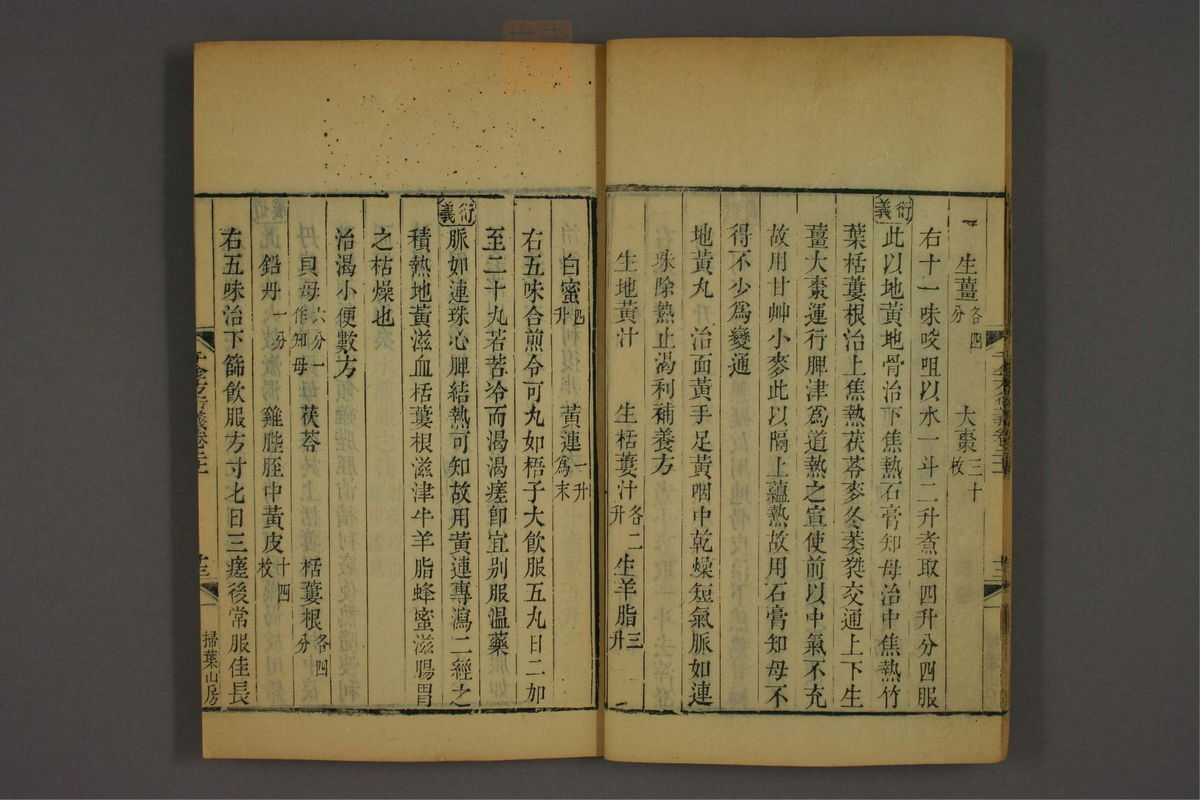 生薑各四分　大棗三十枚
右十一味㕮咀以水一斗二升煮取四升分四服
衍義
此以地黃地骨治下焦熱石膏知母治中焦熱竹
葉栝蔞根治上焦熱茯苓麥冬萎蕤交通上下生
薑大棗運行脾津為道熱之宣使前以中氣不充
故用甘艸小麥此以隔上蘊熱故用石膏知母不
得不少為變通
地黃丸　治面黃手足黃咽中乾燥短氣脈如連
珠除熱止渴利補養方
生地黃汁　生栝蔞汁各二升　生羊脂三升
白蜜四升　黃連一升為末
右五味合煎令可丸如梧子大飲服五丸日二加
至二十丸若苦冷而渴渴瘥卽宜别服溫藥
衍義
脈如連珠心脾結熱可知故用黃連專瀉二經之
積熱地黃滋血栝蔞根滋津牛羊脂蜂蜜滋腸胃
之枯燥也
治渴小便數方
貝母六分一作知母　茯苓　栝蔞根各四分
鉛丹一分　雞膍胵中黃皮十四枚
右五味治下篩飲服方寸匕日三瘥後常服佳長
掃葉山房